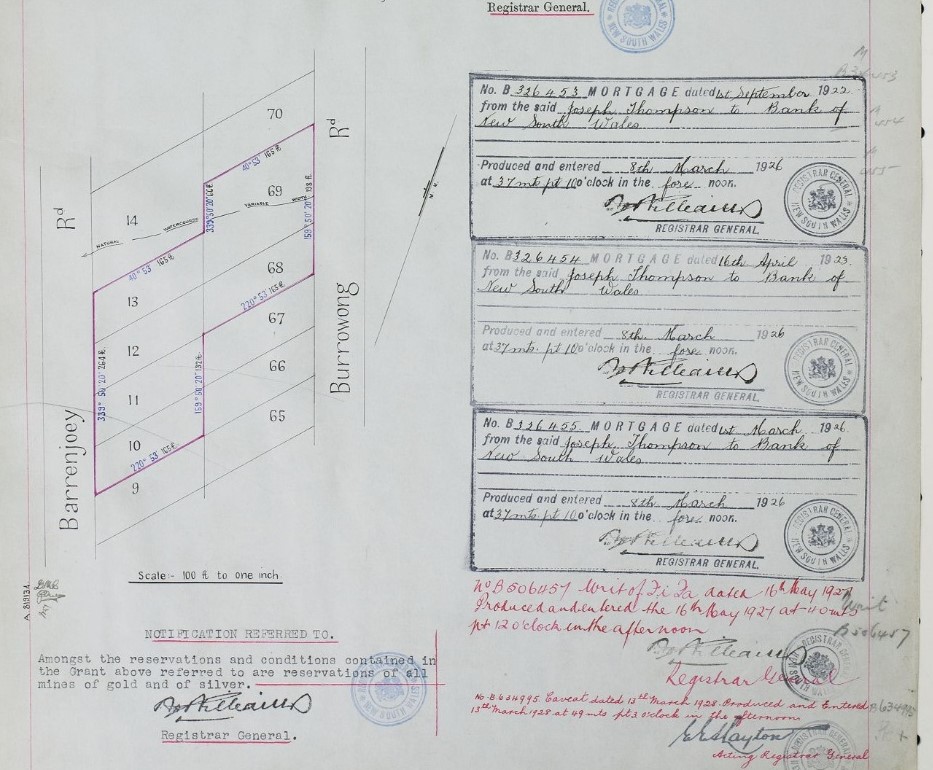 Registrar General.
NEW SOUTH WALES
70
Rd
40° 53' 165 ft
69
339° 50' 20" 66 ft
159° 50' 20" 198 ft
14
Rd
NATURAL WATERCOURSE VARIABLE WIDTH
40° 53' 165 ft
68
220° 53' 165 ft
13
67
12
339° 50' 20" 264 ft
159° 50' 20" 132 ft
66
11
Burrowong
65
10
220° 53' 165 ft
9
Barrenjoey
Scale:- 100 ft to one inch
NOTIFICATION REFERRED TO.
Amongst the reservations and conditions contained in
the Grant above referred to are reservations of all
mines of gold and of silver.
Registrar General.
No. B 326453 MORTGAGE dated 1st September 1922
from the said Joseph Thompson to Bank of
New South Wales
Produced and entered 8th March 1926
at 37 mts pt 10 o'clock in the fore noon.
REGISTRAR GENERAL.
REGISTRAR GENERAL NEW SOUTH WALES
No. B 326454 MORTGAGE dated 16th April 1923
from the said Joseph Thompson to Bank of
New South Wales
Produced and entered 8th March 1926
at 37 mts. pt 10 o'clock in the fore noon.
REGISTRAR GENERAL.
REGISTRAR GENERAL NEW SOUTH WALES
No. B 326455 MORTGAGE dated 1st March 1926
from the said Joseph Thompson to Bank of
New South Wales
Produced and entered 8th March 1926
at 37 mts. pt 10 o'clock in the fore noon.
REGISTRAR GENERAL.
REGISTRAR GENERAL NEW SOUTH WALES
No B506457 Writ of Fi Fa dated 16th May 1927
Produced and entered the 16th May 1927 at
pt 12 o'clock in the afternoon
Registrar General
B506457
No B634995 Caveat dated 13th March 1928 Produced and Entered
13th March 1928 at 49 mts pt 3 o'clock in the afternoon
Acting Registrar General
B634995